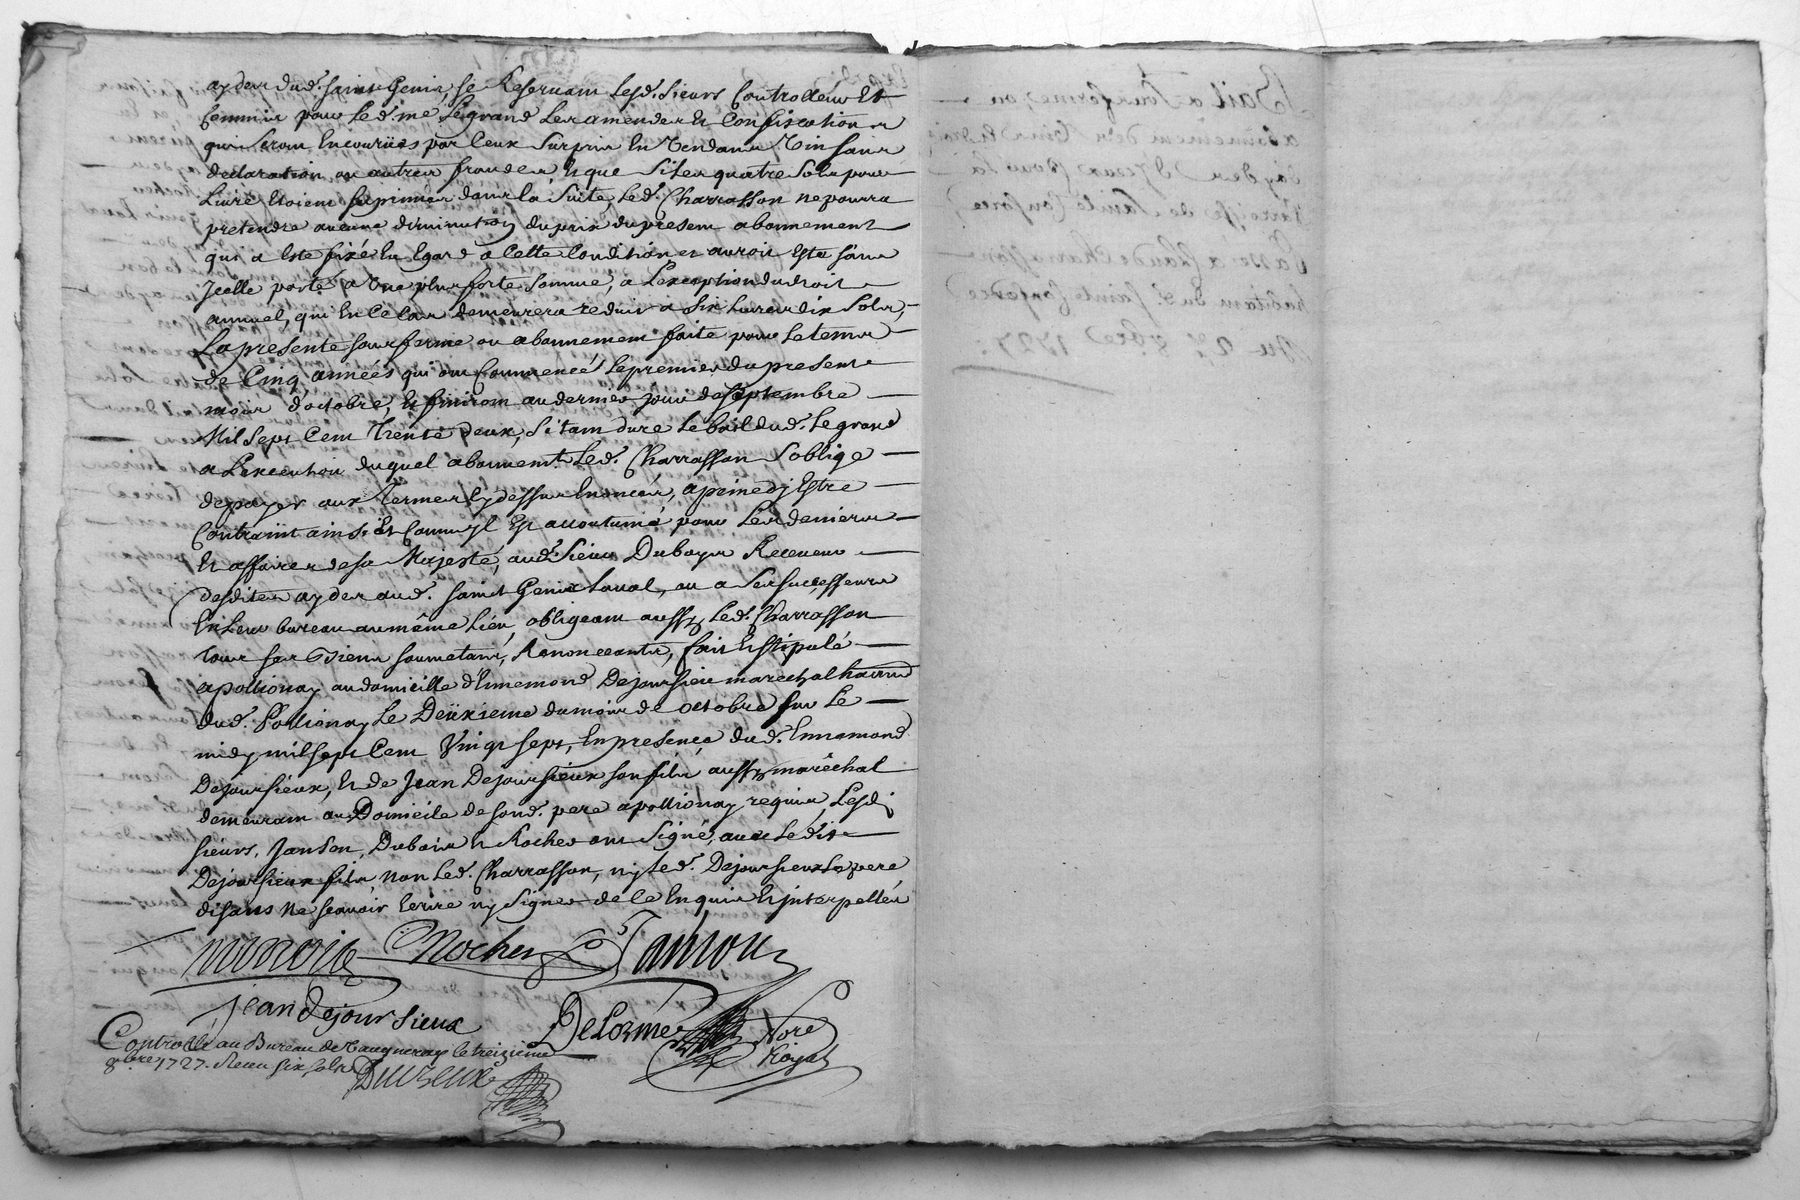 aydes dud. saint Genis, se Reservant lesd. sieurs Controlleur Et
Commis pour led. me. Legrand Les amendes Et Confiscations
qui seront Encouruës par Ceux Surpris En Vendant Vin sans
declaration ou autres fraudes, Et que si Les quatre sols pour
Livre Etoient suprimés dans la Suite, led. Charrasson ne pourra
pretendre aucune diminution du prix du present abonnement
qui a Este fixé En Egard a Cette Condition, et auroit Esté sans
Jcelle porté a Une plus forte somme, a L'exception du droit
annuel, qui En Ce Cas demeurera reduit a six Livres dix sols,
La presente sous ferme ou abonnement faite pour le tems
de Cinq années qui ont Commencé le premier du present
mois d'octobre, Et finiront au dernier jour de septembre
Mil sept Cent Trente deux, si tant dure le bail dud. Legrand
a L'execution duquel abonnemt. Led. Charrasson s'oblige
de payer aux Termes Cy dessus Enoncés, a peine d'y Estre
Contraint ainsi Et Comme Jl Est accoutumé pour Les deniers
Et affaires de sa Majesté, aud. sieur Dubays Receveur
desdites aydes aud. saint Genis Laval, ou a ses successeurs
En Leur bureau au même Lieu, obligeant aussy Led. Charrasson
tous ses Biens soumetant, Renonceante, fait Et stipulé
a pollionay au domicille d'Ennemond Dejoursieu marechal
dud. Pollionay Le Deuxieme du mois de octobre sur Le
midy mil sept Cent Vingt sept, En presence dud. Ennemond
Dejoursieux, Et de Jean Dejoursieux son fils aussy maréchal
demeurant au Domicile de sond. pere a pollionay requis Lesd.
sieurs, Janson, Dubois Et Rocher ont signé, avec Ledit
Dejoursieux fils, non Led. Charrasson, ny led. Dejoursieux Le pere
disans ne scavoir Ecrire ny signer de Ce Enquis Et jnterpellés
Rocher Janson
jean Dejoursieux Delorme Nore Royal
Controllé au Bureau de Vaugneray le treizieme
8bre 1727. Receu six sols